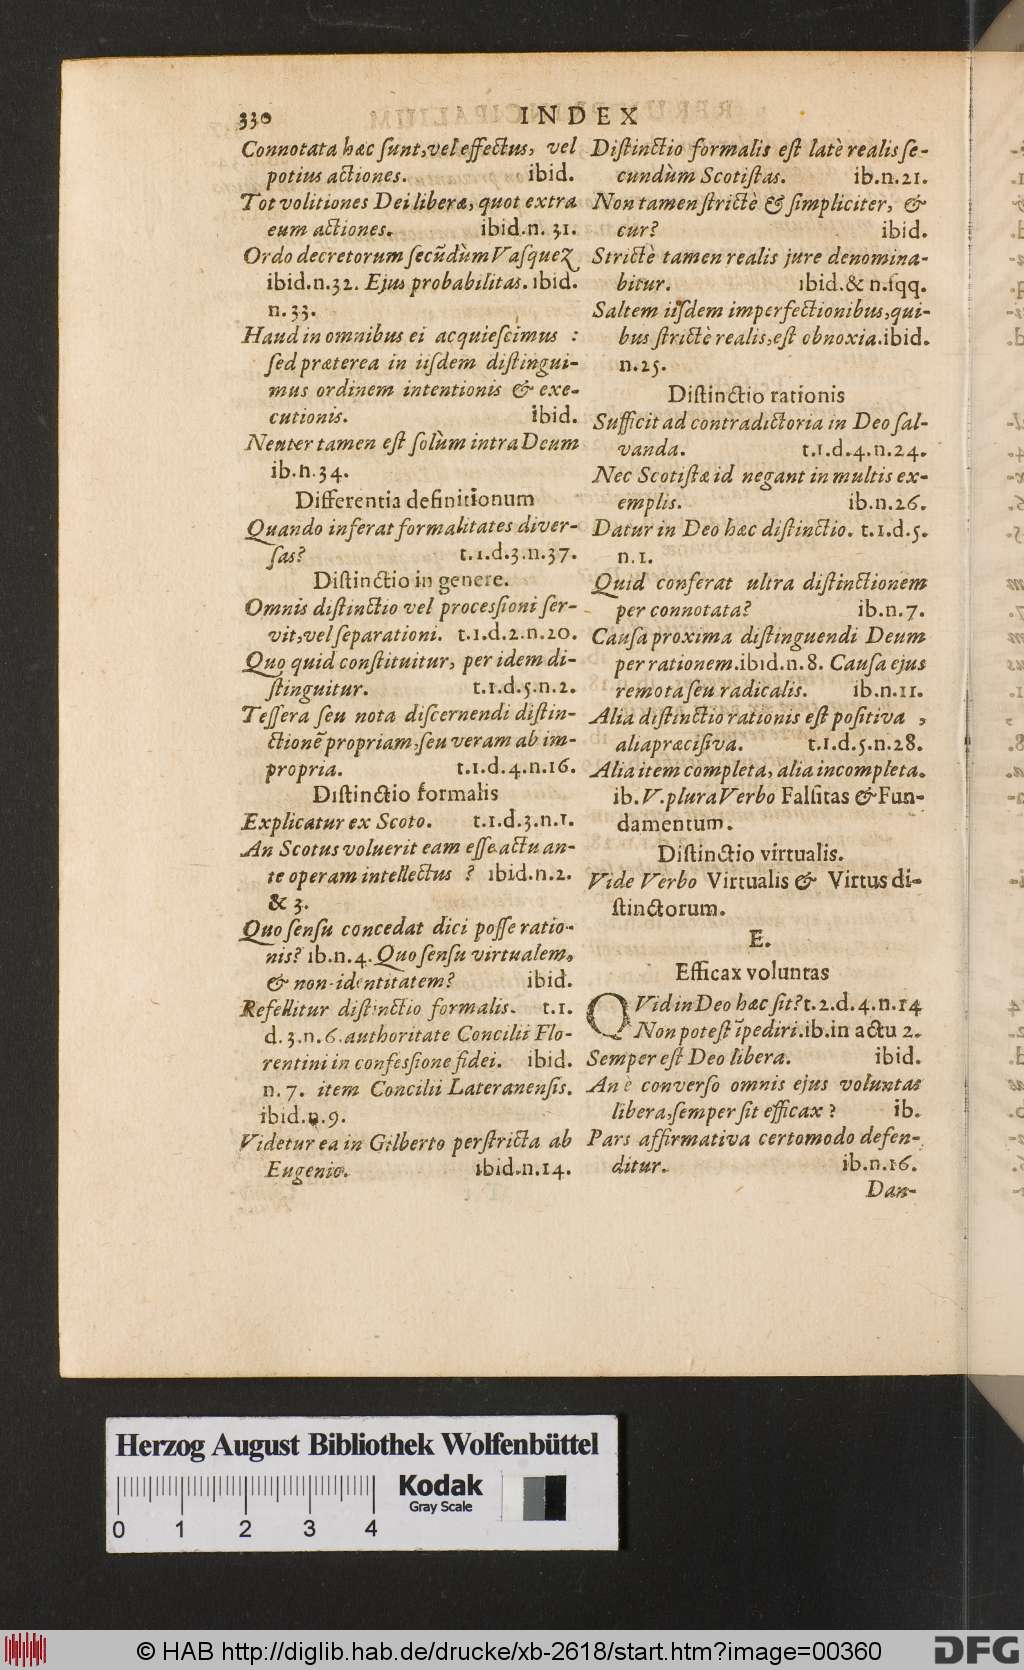 330
INDEX
Connotata hæc ſunt, vel effectus, vel
potius actiones. ibid.
Tot volitiones Dei liberæ, quot extra
eum actiones. ibid.n. 31.
Ordo decretorum ſecũdùm Vaſquez
ibid.n.32. Ejus probabilitas. ibid.
n.33.
Haud in omnibus ei acquieſcimus :
ſed præterea in iiſdem diſtingui-
mus ordinem intentionis & exe-
cutionis. ibid.
Neuter tamen eſt ſolùm intra Deum
ib.n.34.
Differentia definitionum
Quando inferat formalitates diver-
ſas? t.1.d.3.n.37.
Diſtinctio in genere.
Omnis diſtinctio vel proceſſioni ſer-
vit, vel ſeparationi. t.1.d.2.n.20.
Quo quid conſtituitur, per idem di-
ſtinguitur. t.1.d.5.n.2.
Teſſera ſeu nota diſcernendi diſtin-
ctionē propriam, ſeu veram ab im-
propria. t.1.d.4.n.16.
Diſtinctio formalis
Explicatur ex Scoto. t.1.d.3.n.1.
An Scotus voluerit eam eſſe actu an-
te operam intellectus ? ibid.n.2.
& 3.
Quo ſenſu concedat dici poſſe ratio-
nis? ib.n.4. Quo ſenſu virtualem,
& non-identitatem? ibid.
Refellitur diſtinctio formalis. t.1.
d.3.n.6. authoritate Concilii Flo-
rentini in confeſſione fidei. ibid.
n.7. item Concilii Lateranenſis.
ibid.n.9.
Videtur ea in Gilberto perſtricta ab
Eugenio. ibid.n.14.
Diſtinctio formalis eſt latè realis ſe-
cundùm Scotiſtas. ib.n.21.
Non tamen ſtrictè & ſimpliciter, &
cur? ibid.
Strictè tamen realis jure denomina-
bitur. ibid.& n.ſqq.
Saltem iiſdem imperfectionibus, qui-
bus ſtrictè realis, eſt obnoxia. ibid.
n.25.
Diſtinctio rationis
Sufficit ad contradictoria in Deo ſal-
vanda. t.1.d.4.n.24.
Nec Scotiſtæ id negant in multis ex-
emplis. ib.n.26.
Datur in Deo hæc diſtinctio. t.1.d.5.
n.1.
Quid conferat ultra diſtinctionem
per connotata? ib.n.7.
Cauſa proxima diſtinguendi Deum
per rationem. ibid.n.8. Cauſa ejus
remota ſeu radicalis. ib.n.11.
Alia diſtinctio rationis eſt poſitiva ,
alia præciſiva. t.1.d.5.n.28.
Alia item completa, alia incompleta.
ib. V. plura Verbo Falſitas & Fun-
damentum.
Diſtinctio virtualis.
Vide Verbo Virtualis & Virtus di-
ſtinctorum.
E.
Efficax voluntas
QVid in Deo hæc ſit? t.2.d.4.n.14
Non poteſt ĩpediri. ib.in actu 2.
Semper eſt Deo libera. ibid.
An è converſo omnis ejus voluntas
libera, ſemper ſit efficax ? ib.
Pars affirmativa certo modo defen-
ditur. ib.n.16.
Dan-
Herzog August Bibliothek Wolfenbüttel
Kodak
Gray Scale
0 1 2 3 4
© HAB http://diglib.hab.de/drucke/xb-2618/start.htm?image=00360
DFG